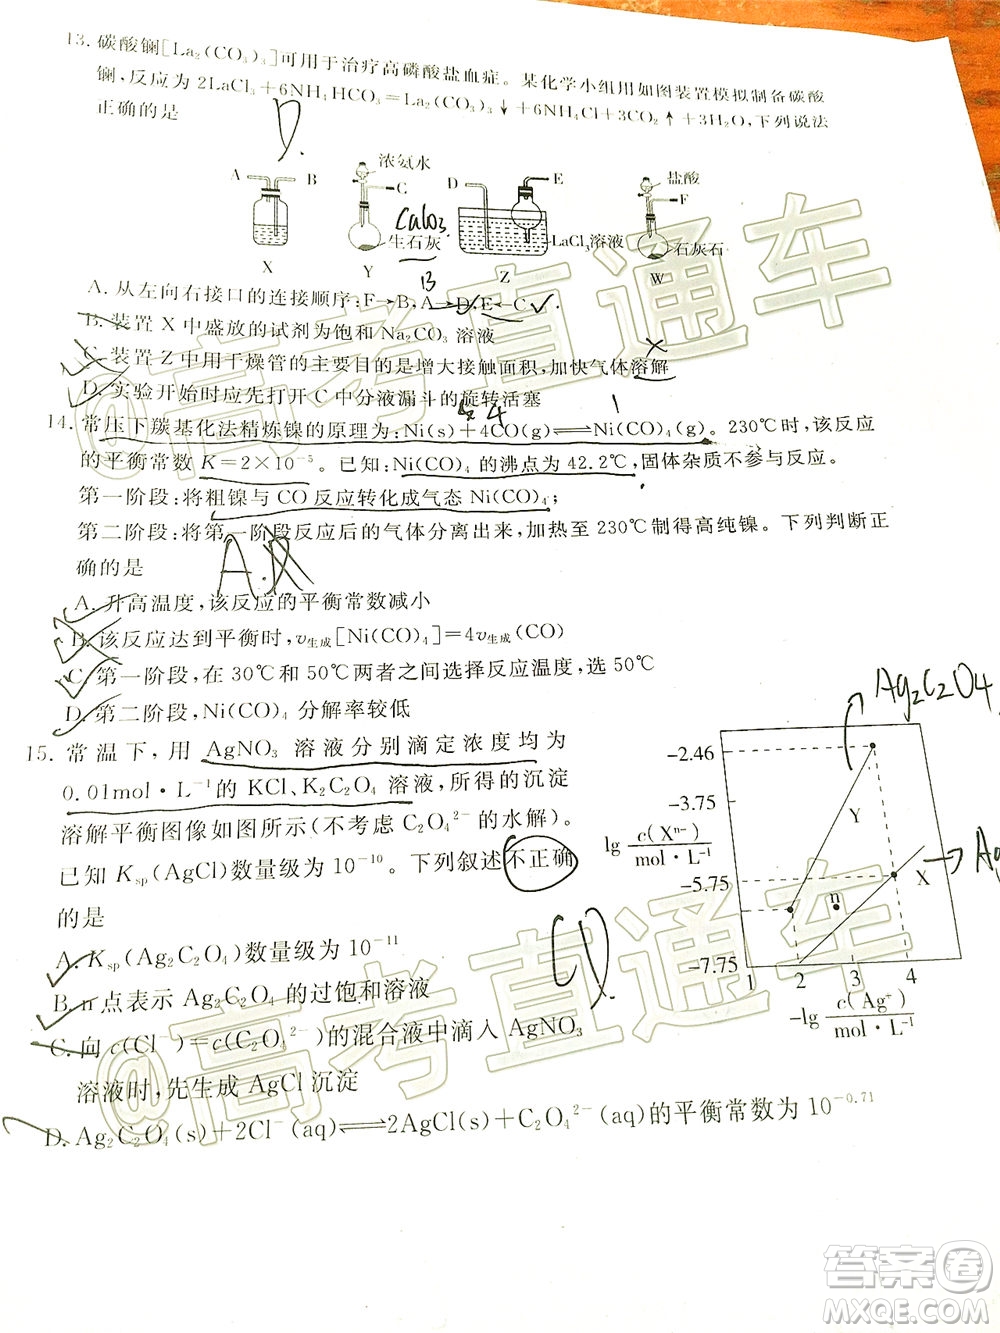 13. 碳酸镧[La₂(CO₃)₃]可用于治疗高磷酸盐血症。某化学小组用如图装置模拟制备碳酸
镧,反应为2LaCl₃+6NH₄HCO₃=La₂(CO₃)₃↓+6NH₄Cl+3CO₂↑+3H₂O,下列说法
正确的是
D.
浓氨水 盐酸
A B C D E F
CaCO₃
生石灰 LaCl₃溶液 石灰石
X Y Z W
B
A. 从左向右接口的连接顺序:F→B,A→D,E←C
B. 装置X中盛放的试剂为饱和Na₂CO₃溶液
C. 装置Z中用干燥管的主要目的是增大接触面积,加快气体溶解
D. 实验开始时应先打开C中分液漏斗的旋转活塞
4 1
14. 常压下羰基化法精炼镍的原理为:Ni(s)+4CO(g)⇌Ni(CO)₄(g)。230℃时,该反应
的平衡常数K=2×10⁻⁵。已知:Ni(CO)₄的沸点为42.2℃,固体杂质不参与反应。
第一阶段:将粗镍与CO反应转化成气态Ni(CO)₄;
第二阶段:将第一阶段反应后的气体分离出来,加热至230℃制得高纯镍。下列判断正
确的是
A.
A. 升高温度,该反应的平衡常数减小
B. 该反应达到平衡时,v生成[Ni(CO)₄]=4v生成(CO)
C. 第一阶段,在30℃和50℃两者之间选择反应温度,选50℃
D. 第二阶段,Ni(CO)₄分解率较低
15. 常温下,用AgNO₃溶液分别滴定浓度均为
0.01mol·L⁻¹的KCl、K₂C₂O₄溶液,所得的沉淀
溶解平衡图像如图所示(不考虑C₂O₄²⁻的水解)。
已知Kₛₚ(AgCl)数量级为10⁻¹⁰。下列叙述不正确
的是
CD.
A. Kₛₚ(Ag₂C₂O₄)数量级为10⁻¹¹
B. n点表示Ag₂C₂O₄的过饱和溶液
C. 向c(Cl⁻)=c(C₂O₄²⁻)的混合液中滴入AgNO₃
溶液时,先生成AgCl沉淀
D. Ag₂C₂O₄(s)+2Cl⁻(aq)⇌2AgCl(s)+C₂O₄²⁻(aq)的平衡常数为10⁻⁰·⁷¹
Ag₂C₂O₄
-2.46
-3.75
-5.75
-7.75
lg c(Xⁿ⁻)/mol·L⁻¹
Y
X
n
Ag
1 2 3 4
-lg c(Ag⁺)/mol·L⁻¹
@高考直通车
@高考直通车
答案圈
MXQE.COM